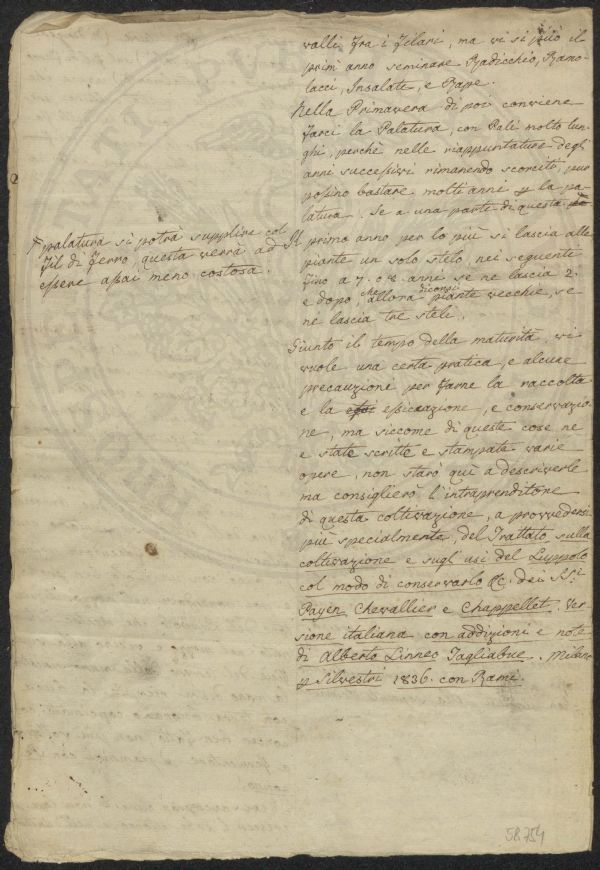 valli fra i filari, ma vi si può il
primo anno seminare Radicchio, Ramo-
lacci, Insalate, e Rape.
Nella Primavera di poi conviene
farci la Palatura, con Pali molto lun-
ghi, perchè nelle riappuntature degl'
anni successivi rimanendo scorciti, pur
possino bastare molti anni p la pa-
latura. Se a una parte di questa
+ palatura si potrà supplire col
fil di ferro, questa verrà ad
essere assai meno costosa.
Il primo anno per lo più si lascia alle
piante un solo stelo, nei seguenti
fino a 7. o 8. anni se ne lascia 2.
e dopo, che allora diconsi piante vecchie, se
ne lascia tre steli.
Giunto il tempo della maturità, vi
vuole una certa pratica, e alcune
precauzioni per farne la raccolta
e la essiccazione, e conservazio-
ne, ma siccome di queste cose ne
e state scritte e stampate varie
opere, non starò quì a descriverle
ma consiglierò l'intraprenditore
di questa coltivazione, a provvedersi
più specialmente, del Trattato sulla
coltivazione e sugl'usi del Luppolo
col modo di conservarlo &C. dei SS.ⁱ
Payen Chevallier e Chappellet. Ver
sione italiana con addizioni e note
di Alberto Linneo Tagliabue. Milano
p Silvestri 1836. con Rami.
58.754